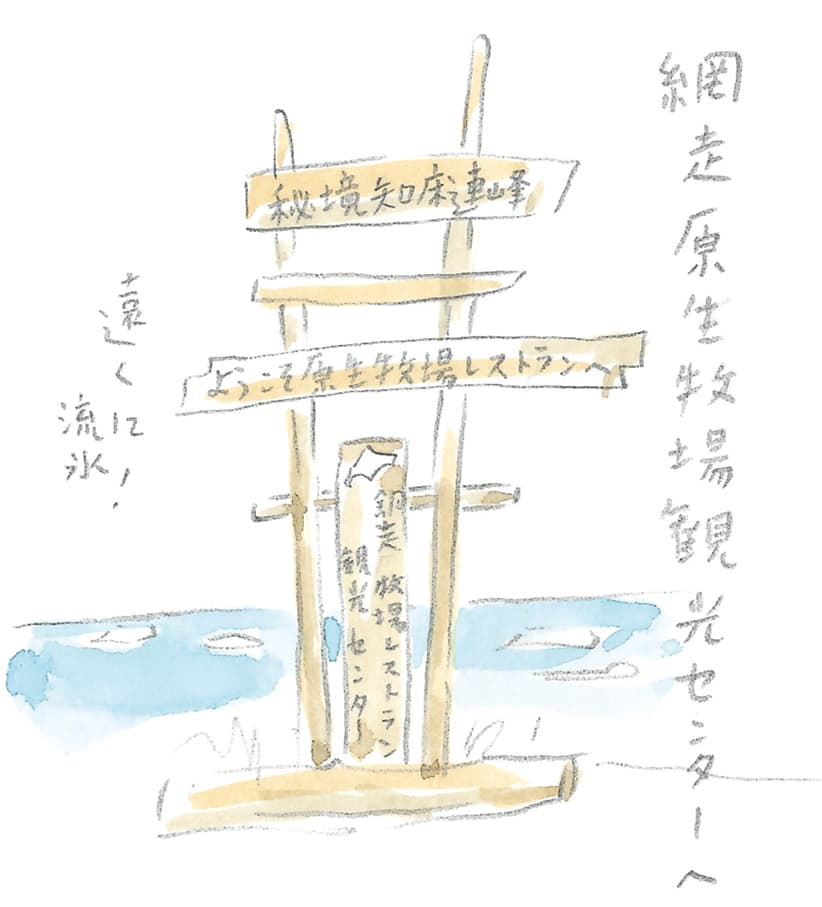 網走原生牧場観光センターへ
秘境知床連峰
ようこそ原生牧場レストランへ
網走牧場レストラン
観光センター
遠くに！
流氷